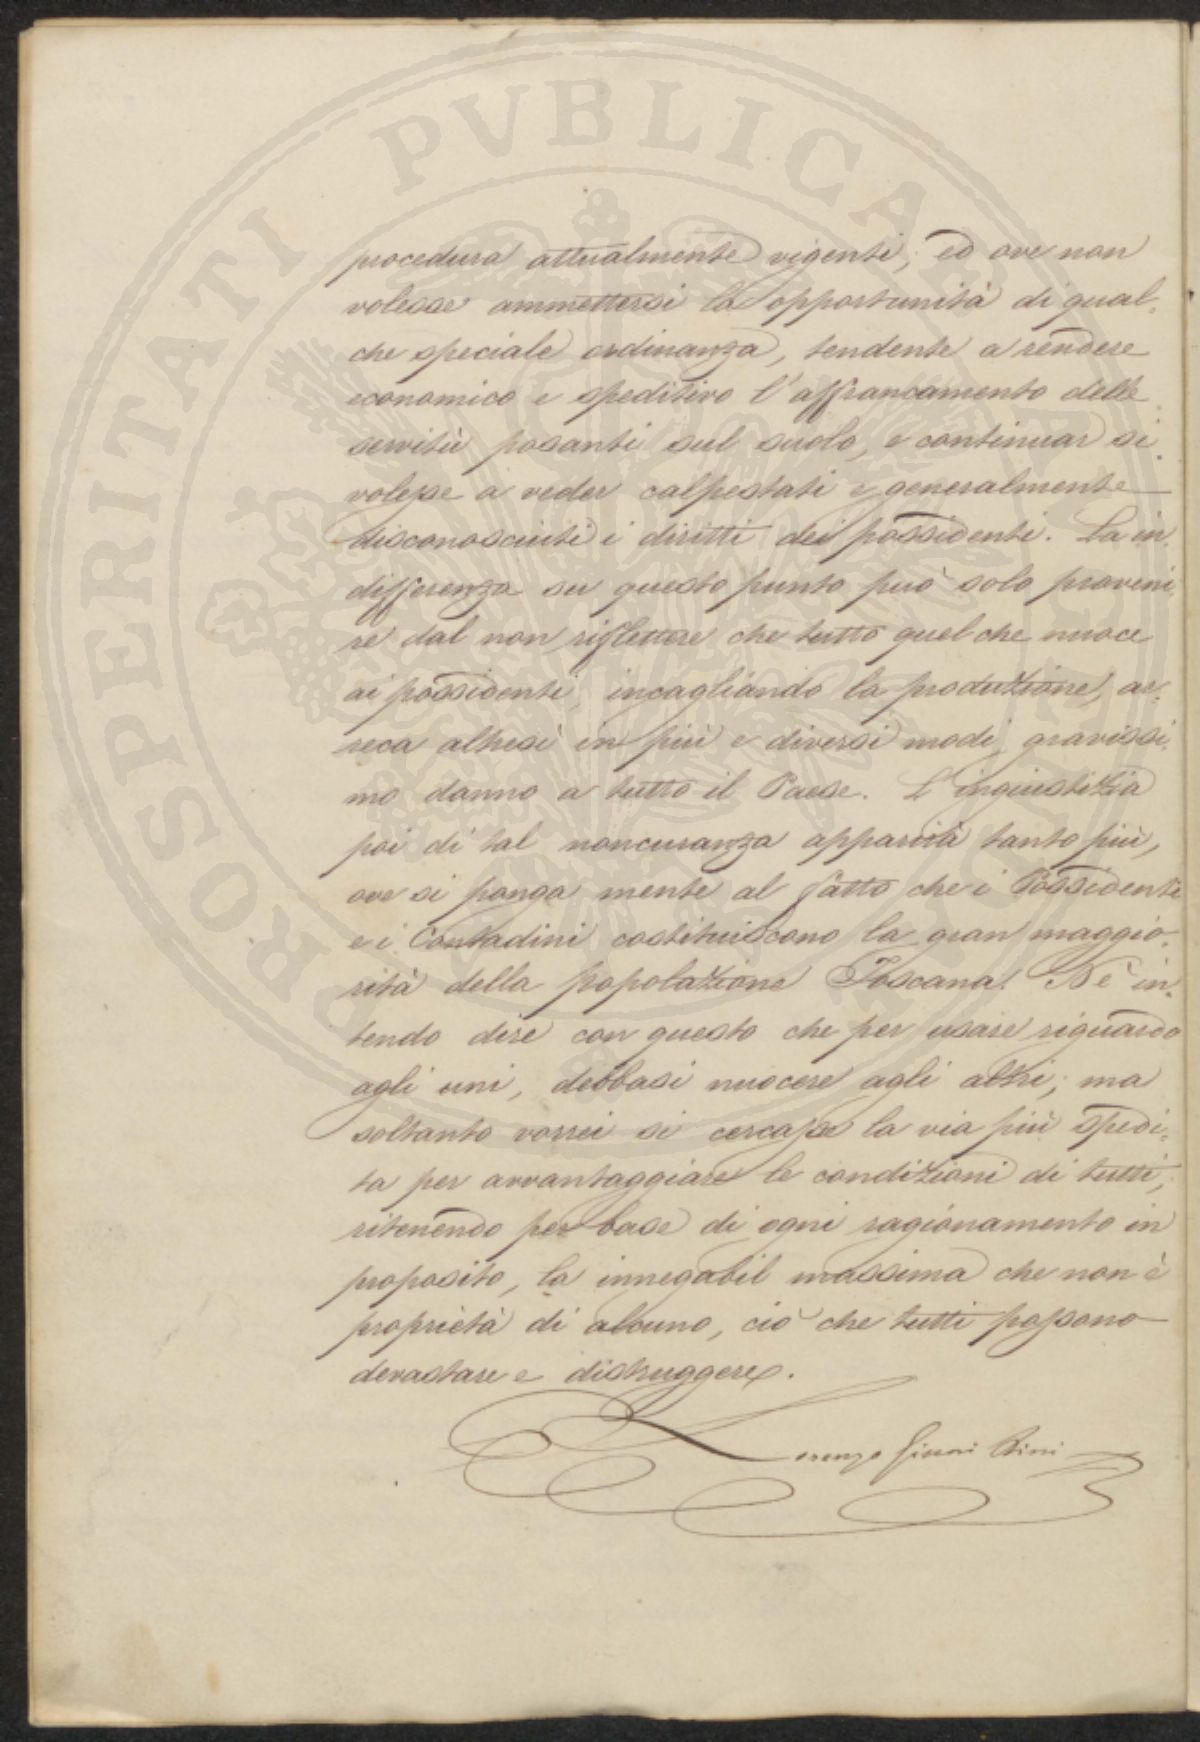 procedura attualmente vigenti; ed ove non
volesse ammettersi la opportunità di qual-
che speciale ordinanza, tendente a rendere
economico e speditivo l'affrancamento delle
servitù posanti sul suolo, e continuar si
volesse a veder calpestati e generalmente
disconosciuti i diritti dei possidenti. La in-
differenza su questo punto può solo proveni-
re dal non riflettere che tutto quel che nuoce
ai possidenti, incagliando la produzione, ar-
reca altresì in più e diversi modi, gravissi-
mo danno a tutto il Paese. L'ingiustizia
poi di tal noncuranza apparirà tanto più,
ove si ponga mente al fatto che i Possidenti
e i Contadini costituiscono la gran maggio-
rità della popolazione Toscana. Nè in-
tendo dire con questo che per usare riguardo
agli uni, debbasi nuocere agli altri; ma
soltanto vorrei si cercasse la via più spedi-
ta per avvantaggiare le condizioni di tutti,
ritenendo per base di ogni ragionamento in
proposito, la innegabil massima che non è
proprietà di alcuno, ciò che tutti possono
devastare e distruggere.
Lorenzo Ginori
PROSPERITATI PVBLICAE